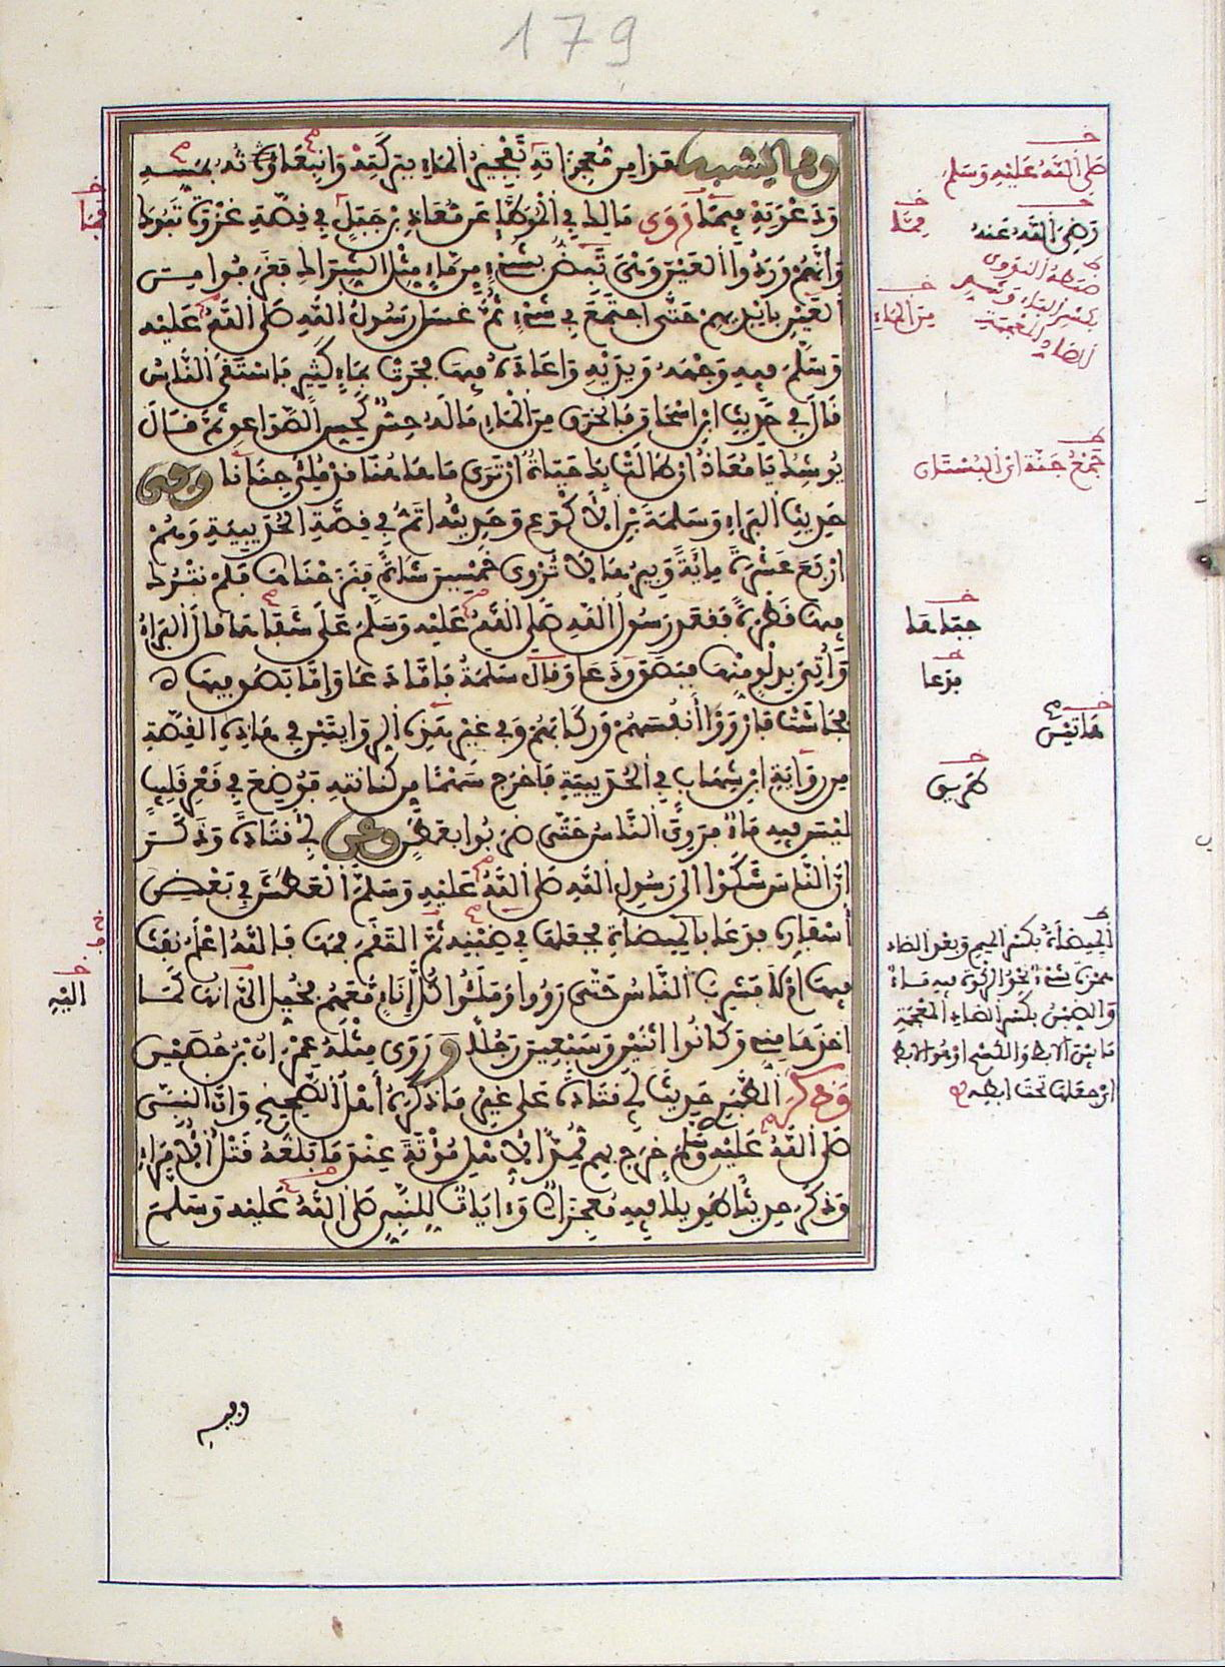 179
ومما يشبه هذا من معجزاته تفجير الماء ببركته وانبعاثه بمسه
ودعوته فيما روى مالك في الموطا عن معاذ بن جبل في قصة غزوة تبوك
وانهم وردوا العين وهي تبض بشيء من ماء مثل الشراك فغرفوا من
العين بايديهم حتى اجتمع في شيء ثم غسل رسول الله صلى الله عليه
وسلم فيه وجهه ويديه واعاده فيها فجرت بماء كثير فاستقى الناس
قال في حديث ابن اسحاق فانخرق من الماء ما له حس كحس الصواعق ثم قال
يوشك يا معاذ ان طالت بك حياة ان ترى ما هاهنا قد ملئ جنانا وفي
حديث البراء وسلمة بن الاكوع وحديثه اتم في قصة الحديبية وهم
اربع عشرة مائة وبيرها لا تروي خمسين شاة فنزحناها فلم نترك
فيها قطرة فقعد رسول الله صلى الله عليه وسلم على شفاها قال البراء
واتي بدلو منها فبصق ودعا وقال سلمة فاما دعا واما بصق فيها
فجاشت فارووا انفسهم وركابهم وفي غير هذه الروايتين في هاذه القصة
من رواية ابن شهاب في الحديبية فاخرج سهما من كنانته فوضع في قعر قليب
ليس فيه ماء فروي الناس حتى ضربوا بعطن وعن ابي قتادة وذكر
ان الناس شكوا الى رسول الله صلى الله عليه وسلم العطش في بعض
اسفاره فدعا بالميضاة فجعلها في ضبنه ثم التقم فمها فالله اعلم نفث
فيها ام لا فشرب الناس حتى رووا وملئوا كل اناء معهم فخيل الي انها كما
اخذها مني وكانوا اثنين وسبعين رجلا وروى مثله عمران بن حصين
وذكر الطبري حديث ابي قتادة على غير ما ذكره اهل الصحيح وان النبي
صلى الله عليه وسلم خرج بهم ممدا لاهل موتة عند ما بلغه قتل الامراء
وذكر حديثا طويلا فيه معجزات وايات للنبي صلى الله عليه وسلم
صلى الله عليه وسلم
رضي الله عنه
ضبطه النووي
بكسر الباء
الضاد المعجمة
من الماء
جمع جنة اي البستان
جباها
فدعا
هاتين
طريق
الميضاة بكسر الميم وبعد الضاد
همزة شيء نحو الركوة فيه ماء
والضبن بكسر الضاد المعجمة
ما بين الابط والكشح او هو الابط
اي جعلها تحت ابطه
اليه
وفيه